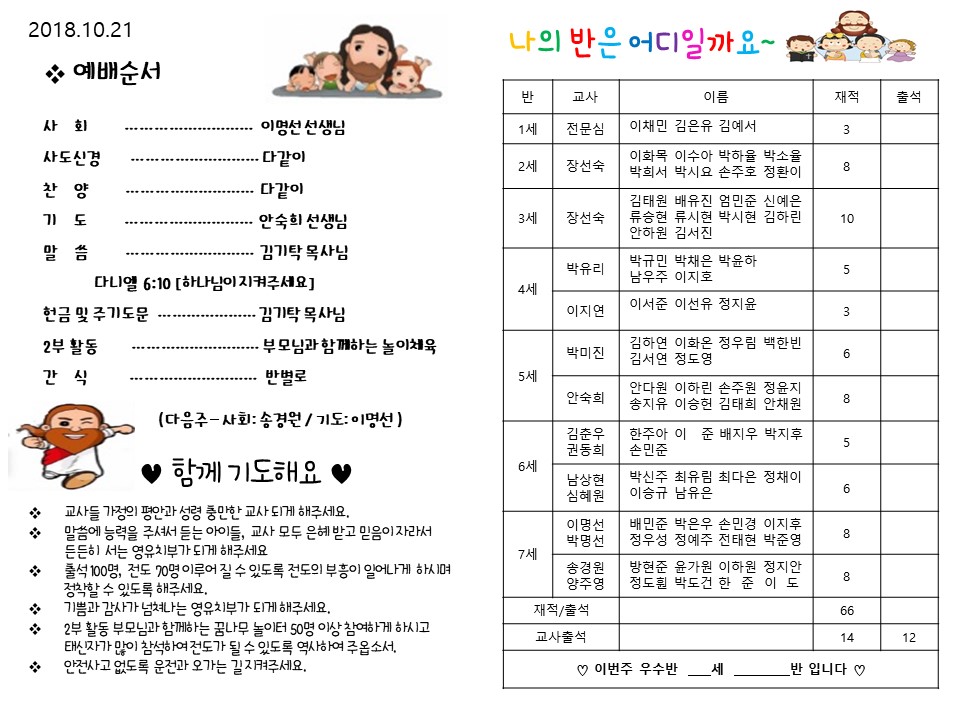 2018.10.21
❖ 예배순서
사 회 -------------------------- 이명선 선생님
사도신경 -------------------------- 다같이
찬 양 -------------------------- 다같이
기 도 -------------------------- 안숙희 선생님
말 씀 -------------------------- 김기탁 목사님
다니엘 6:10 [하나님이 지켜주세요]
헌금 및 주기도문 --------------------- 김기탁 목사님
2부 활동 -------------------------- 부모님과 함께하는 놀이체육
간 식 -------------------------- 반별로
(다음주 – 사회: 송경원 / 기도: 이명선 )
♥ 함께 기도해요 ♥
❖ 교사들 가정의 평안과 성령 충만한 교사 되게 해주세요.
❖ 말씀에 능력을 주셔서 듣는 아이들, 교사 모두 은혜 받고 믿음이 자라서
든든히 서는 영유치부가 되게 해주세요
❖ 출석 100명, 전도 70명 이루어 질 수 있도록 전도의 부흥이 일어나게 하시며
정착할 수 있도록 해주세요.
❖ 기쁨과 감사가 넘쳐나는 영유치부가 되게 해주세요.
❖ 2부 활동 부모님과 함께하는 꿈나무 놀이터 50명 이상 참여하게 하시고
태신자가 많이 참석하여 전도가 될 수 있도록 역사하여 주옵소서.
❖ 안전사고 없도록 운전과 오가는 길 지켜주세요.
나의 반은 어디일까요~
반 교사 이름 재적 출석
1세 전문심 이채민 김은유 김예서 3
2세 장선숙 이화목 이수아 박하율 박소율 8
박희서 박시요 손주호 정환이
3세 장선숙 김태원 배유진 엄민준 신예은 10
류승현 류시현 박시현 김하린
안하원 김서진
4세 박유리 박규민 박채은 박윤하 5
남우주 이지호
이지연 이서준 이선유 정지윤 3
5세 박미진 김하연 이화온 정우림 백한빈 6
김서연 정도영
안숙희 안다원 이하린 손주원 정윤지 8
송지유 이승헌 김태희 안채원
6세 김춘우 한주아 이 준 배지우 박지후 5
권동희 손민준
남상현 박신주 최유림 최다은 정채이 6
심혜원 이승규 남유은
7세 이명선 배민준 박은우 손민경 이지후 8
박명선 정우성 정예주 전태현 박준영
송경원 방현준 윤가원 이하원 정지안 8
양주영 정도훤 박도건 한 준 이 도
재적/출석 66
교사출석 14 12
♡ 이번주 우수반 ___세 ________반 입니다 ♡